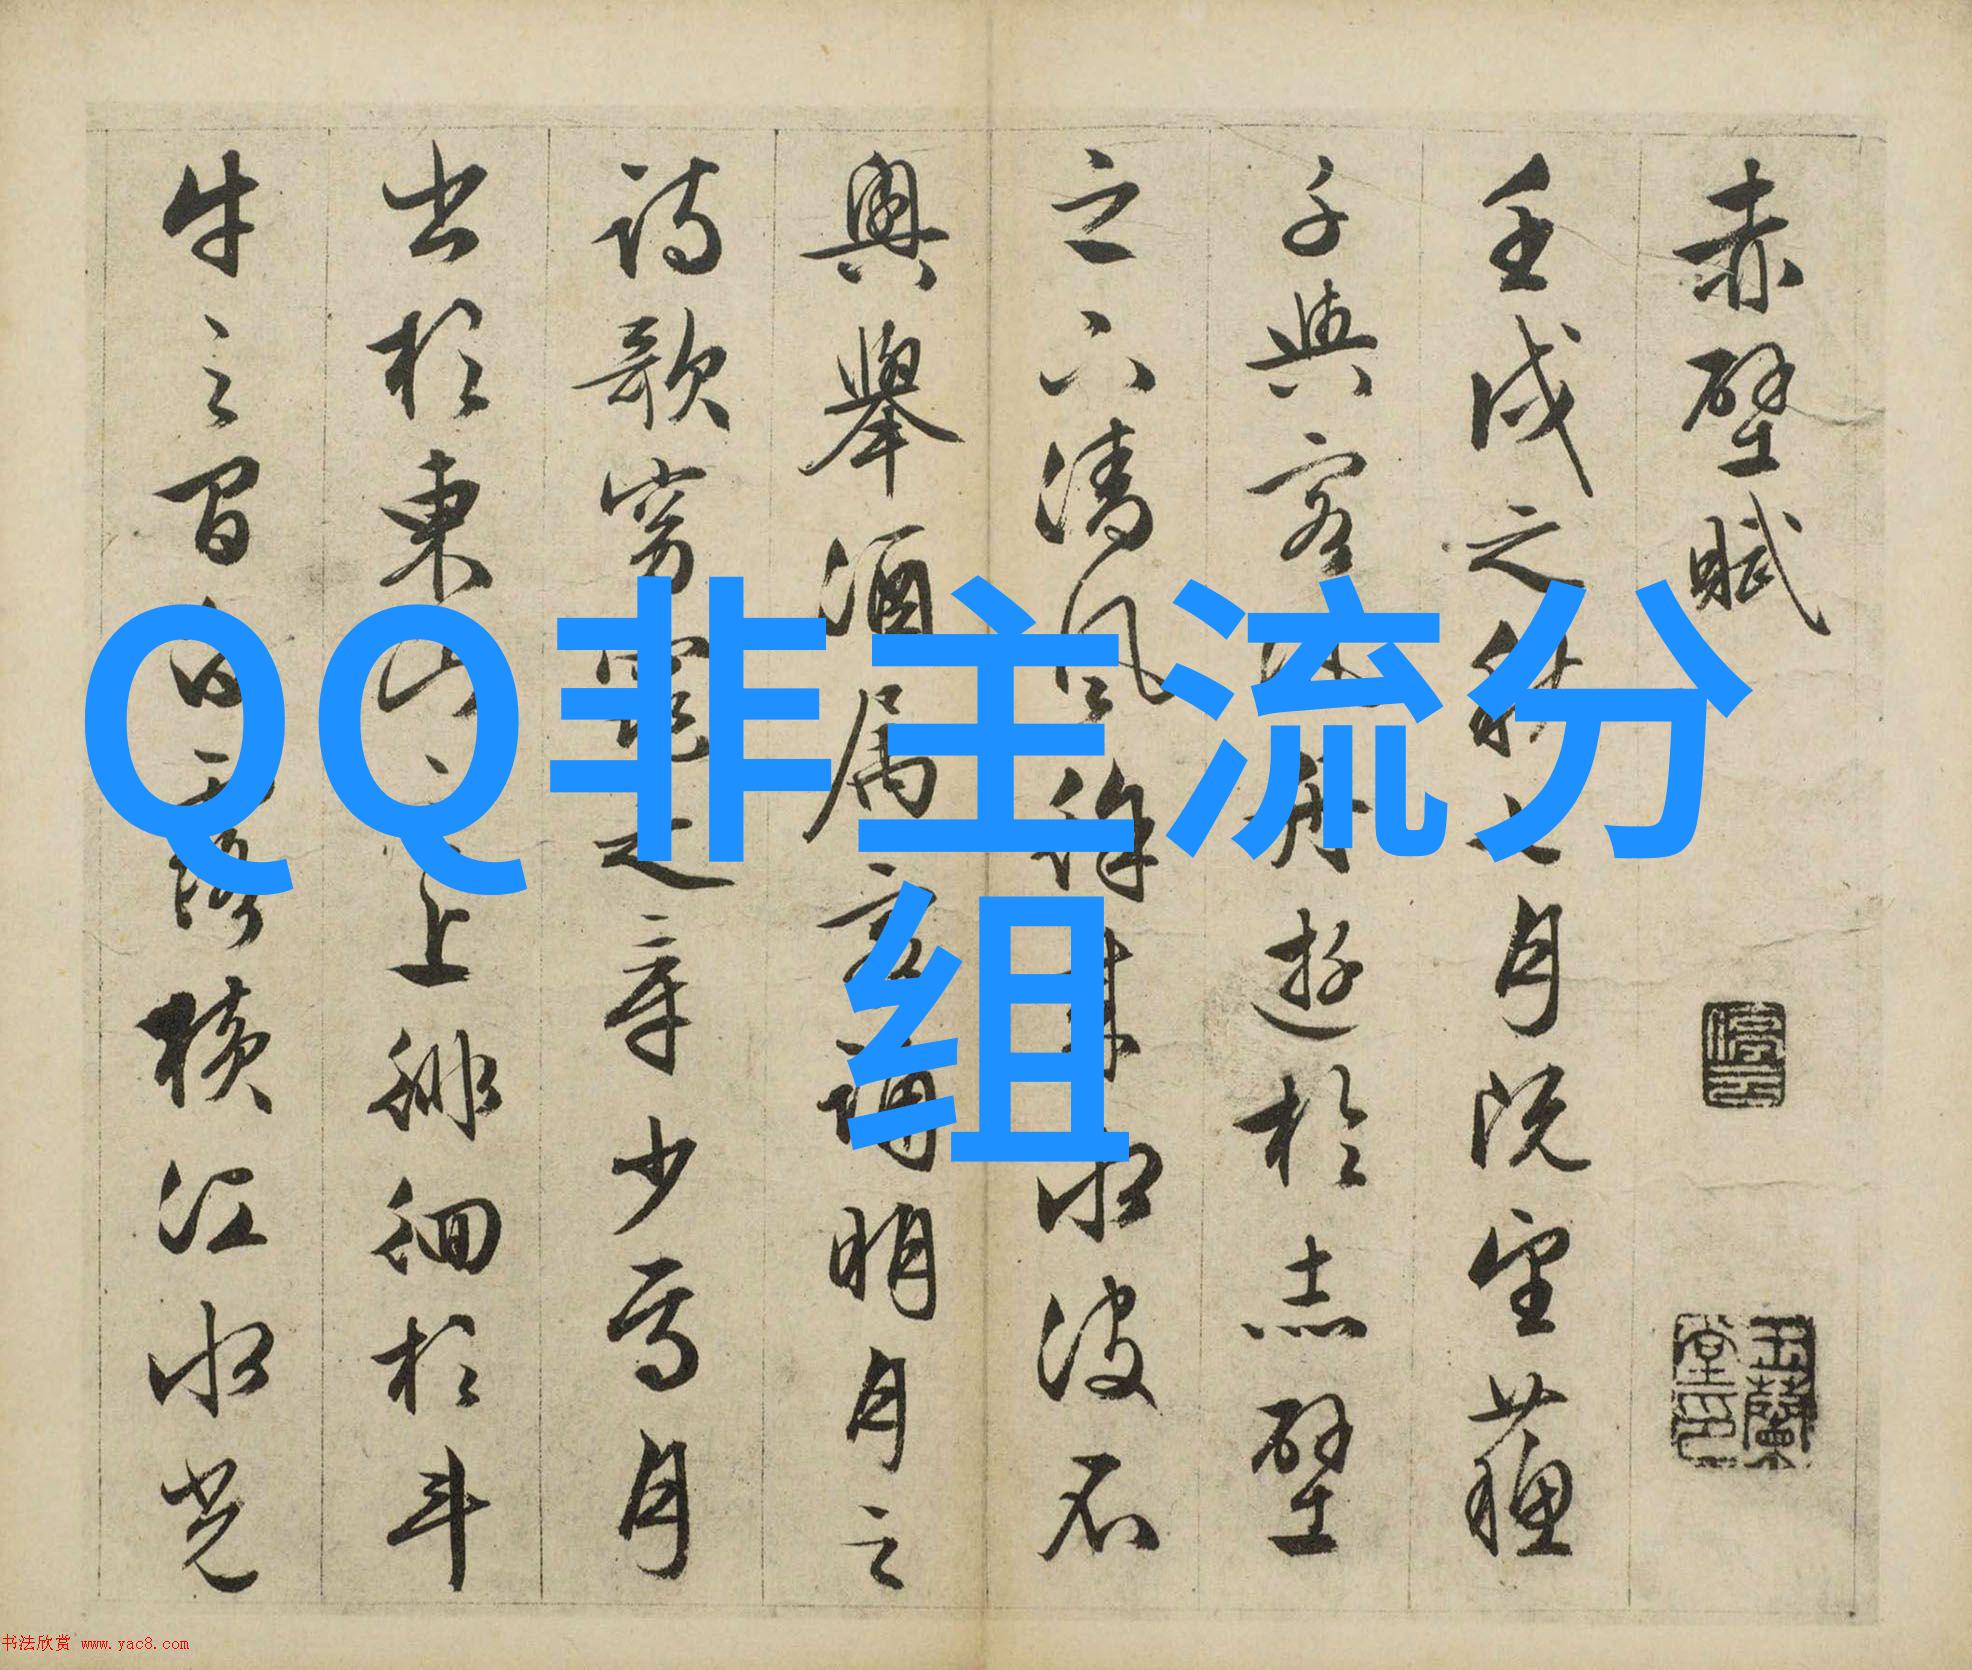 赤壁賦
壬戌之秋七月既望蘓
子與客泛舟遊於赤壁
之下清風徐來水波不
興舉酒属客誦明月之
詩歌窈窕之章少焉月
出於東山之上徘徊於斗
牛之間白露橫江水光
停雲
玉蘭堂印
QQ非主流分
组
书法欣赏 www.yac8.com